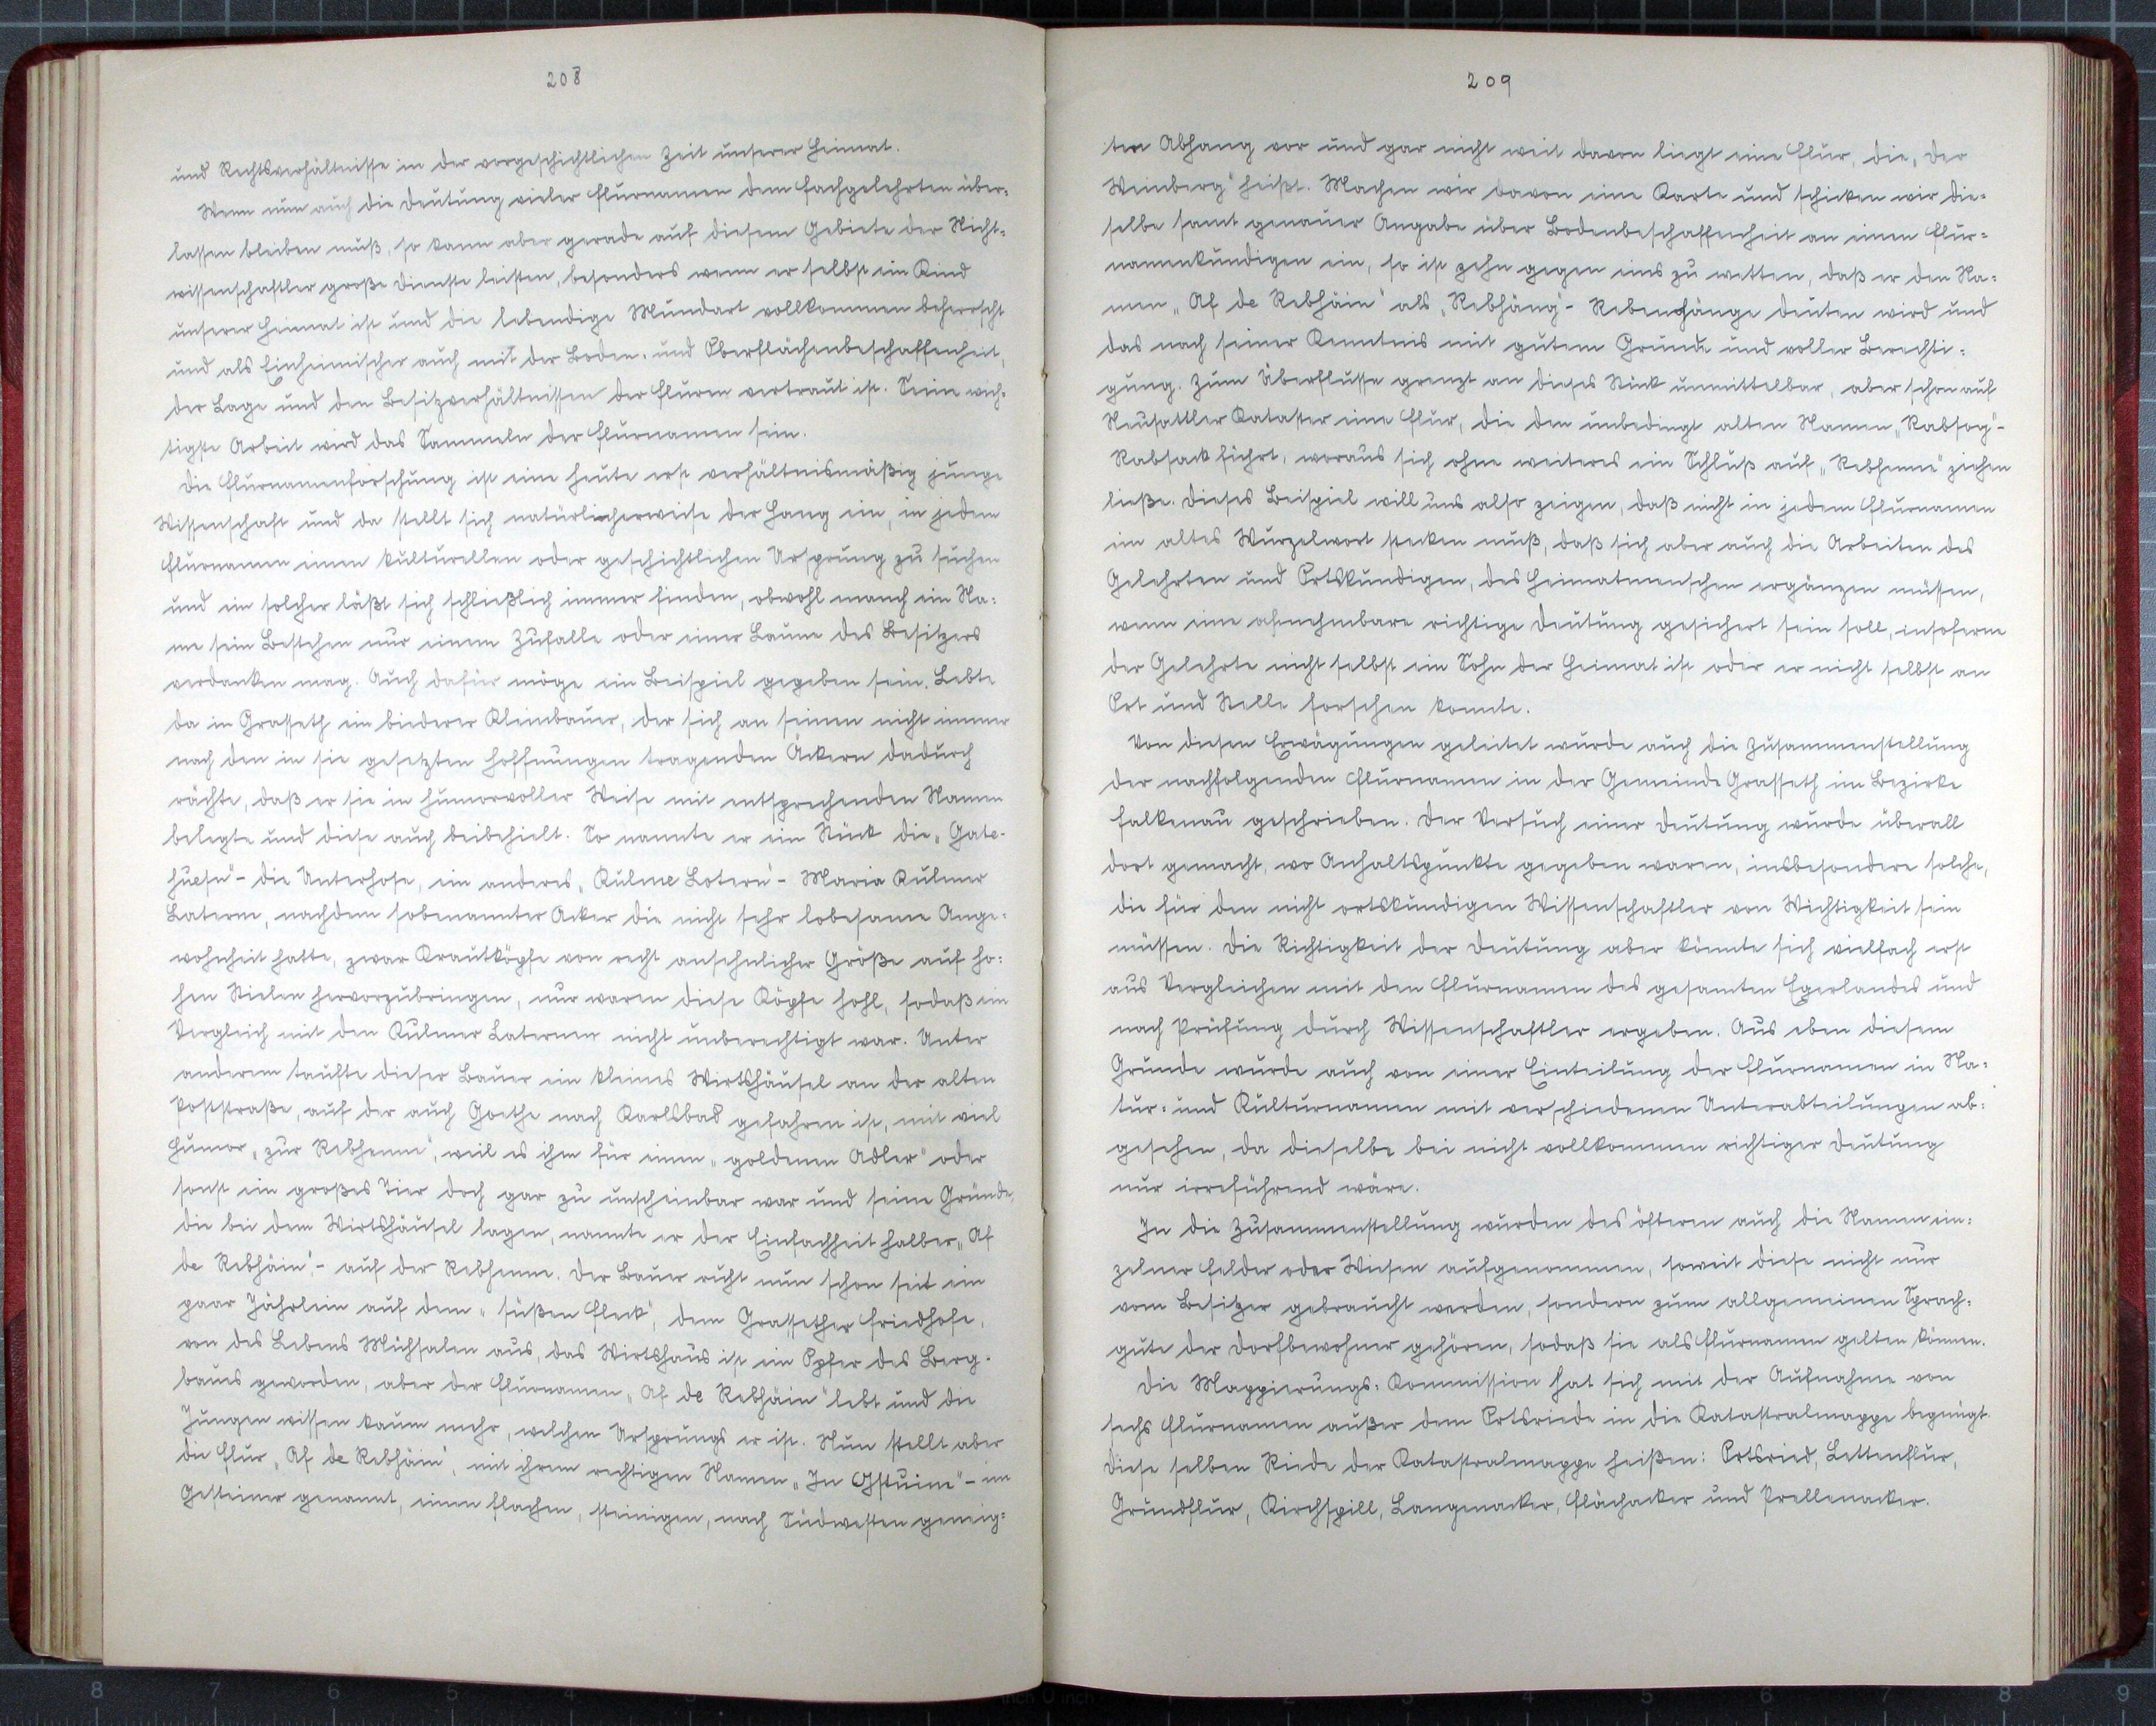 208
und Rechtsverhältnisse in der vorgeschichtlichen Zeit unserer Heimat.
Wenn nun auch die Deutung vieler Flurnamen dem Fachgelehrten über-
lassen bleiben muß, so kann aber gerade auf diesem Gebiete der Nicht-
wissenschaftler große Dienste leisten, besonders wenn er selbst ein Kind
unserer Heimat ist und die lebendige Mundart vollkommen beherrscht
und als Einheimischer auch mit der Boden- und Oberflächenbeschaffenheit,
der Lage und den Besitzverhältnissen der Fluren vertraut ist. Seine wich-
tigste Arbeit wird das Sammeln der Flurnamen sein.
Die Flurnamenforschung ist eine heute erst verhältnismäßig junge
Wissenschaft und da stellt sich natürlicherweise der Hang ein, in jedem
Flurnamen einen kulturellen oder geschichtlichen Ursprung zu suchen
und ein solcher läßt sich schließlich immer finden, obwohl manch ein Na-
me sein Bestehen nur einem Zufalle oder einer Laune des Besitzers
verdanken mag. Auch dafür möge ein Beispiel gegeben sein. Lebte
da in Grasseth ein biederer Kleinbauer, der sich an seinen nicht immer
nach den in sie gesetzten Hoffnungen tragenden Äckern dadurch
rächte, daß er sie in humorvoller Weise mit entsprechenden Namen
belegte und diese auch beibehielt. So nannte er ein Stück die „Gate-
huesn" - die Unterhose, ein anderes „Kulme Lotern" - Maria Kulmer
Laterne, nachdem sobenannter Acker die nicht sehr lobesame Ange-
wohnheit hatte, zwar Krautköpfe von recht ansehnlicher Größe auf ho-
hen Stielen hervorzubringen, nur waren diese Köpfe hohl, sodaß ein
Vergleich mit den Kulmer Laternen nicht unberechtigt war. Unter
anderem taufte dieser Bauer ein kleines Wirtshäusel an der alten
Poststraße, auf der auch Goethe nach Karlsbad gefahren ist, mit viel
Humor „zur Rebhenne", weil es ihm für einen „goldenen Adler" oder
sonst ein großes Tier doch gar zu unscheinbar war und seine Gründe,
die bei dem Wirtshäusel lagen, nannte er der Einfachheit halber „Af
de Rebhäin" - auf der Rebhenne. Der Bauer ruht nun schon seit ein
paar Jährlein auf dem „süßen Fleck", dem Grassether Friedhofe,
von des Lebens Mühsalen aus, das Wirtshaus ist ein Opfer des Berg-
baues geworden, aber der Flurnamen „Af de Rebhäin" lebt und die
Jungen wissen kaum mehr, welchen Ursprungs er ist. Nun stellt aber
die Flur „Af de Rebhäin", mit ihrem richtigen Namen „In Gstuine" - im
Gesteiner genannt, einen flachen, steinigen, nach Südwesten geneig-
209
ten Abhang vor und gar nicht weit davon liegt eine Flur, die „Der
Weinberg" heißt. Machen wir davon eine Karte und schicken wir die-
selbe samt genauer Angabe über Bodenbeschaffenheit an einen Flur-
namenkundigen ein, so ist zehn gegen eins zu wetten, daß er den Na-
men „Af de Rebhäin" als „Rebhäng" - Rebenhänge deuten wird und
das nach seiner Kenntnis mit gutem Grunde und voller Berechti-
gung. Zum Überflusse grenzt an dieses Stück unmittelbar, aber schon auf
Neusattler Kataster eine Flur, die den unbedingt alten Namen „Rabsog" -
Rabsack führt, woraus sich ohne weiteres ein Schluß auf „Rebhenne" ziehen
ließe. Dieses Beispiel will uns also zeigen, daß nicht in jedem Flurnamen
ein altes Wurzelwort stecken muß, daß sich aber auch die Arbeiten des
Gelehrten und Ortskundigen, des Heimatmenschen ergänzen müssen,
wenn eine annehmbare richtige Deutung gesichert sein soll, insoferne
der Gelehrte nicht selbst ein Sohn der Heimat ist oder er nicht selbst an
Ort und Stelle forschen konnte.
Von diesen Erwägungen geleitet wurde auch die Zusammenstellung
der nachfolgenden Flurnamen in der Gemeinde Grasseth im Bezirke
Falkenau geschrieben. Der Versuch einer Deutung wurde überall
dort gemacht, wo Anhaltspunkte gegeben waren, insbesondere solche,
die für den nicht ortskundigen Wissenschaftler von Wichtigkeit sein
müssen. Die Richtigkeit der Deutung aber könnte sich vielfach erst
aus Vergleichen mit den Flurnamen des gesamten Egerlandes und
nach Prüfung durch Wissenschaftler ergeben. Aus eben diesem
Grunde wurde auch von einer Einteilung der Flurnamen in Na-
tur- und Kulturnamen mit verschiedenen Unterabteilungen ab-
gesehen, da dieselbe bei nicht vollkommen richtiger Deutung
nur irreführend wäre.
In die Zusammenstellung wurden des öfteren auch die Namen ein-
zelner Felder oder Wiesen aufgenommen, soweit diese nicht nur
vom Besitzer gebraucht werden, sondern zum allgemeinen Sprach-
gute der Dorfbewohner gehören, sodaß sie als Flurnamen gelten können.
Die Mappierungs-Kommission hat sich mit der Aufnahme von
sechs Flurnamen außer dem Ortsriede in die Katastralmappe begnügt.
Diese selben Riede der Katastralmappe heißen: Ortsried, Lettenflur,
Grundflur, Kirchspill, Langenacker, Flachacker und Prellenacker.